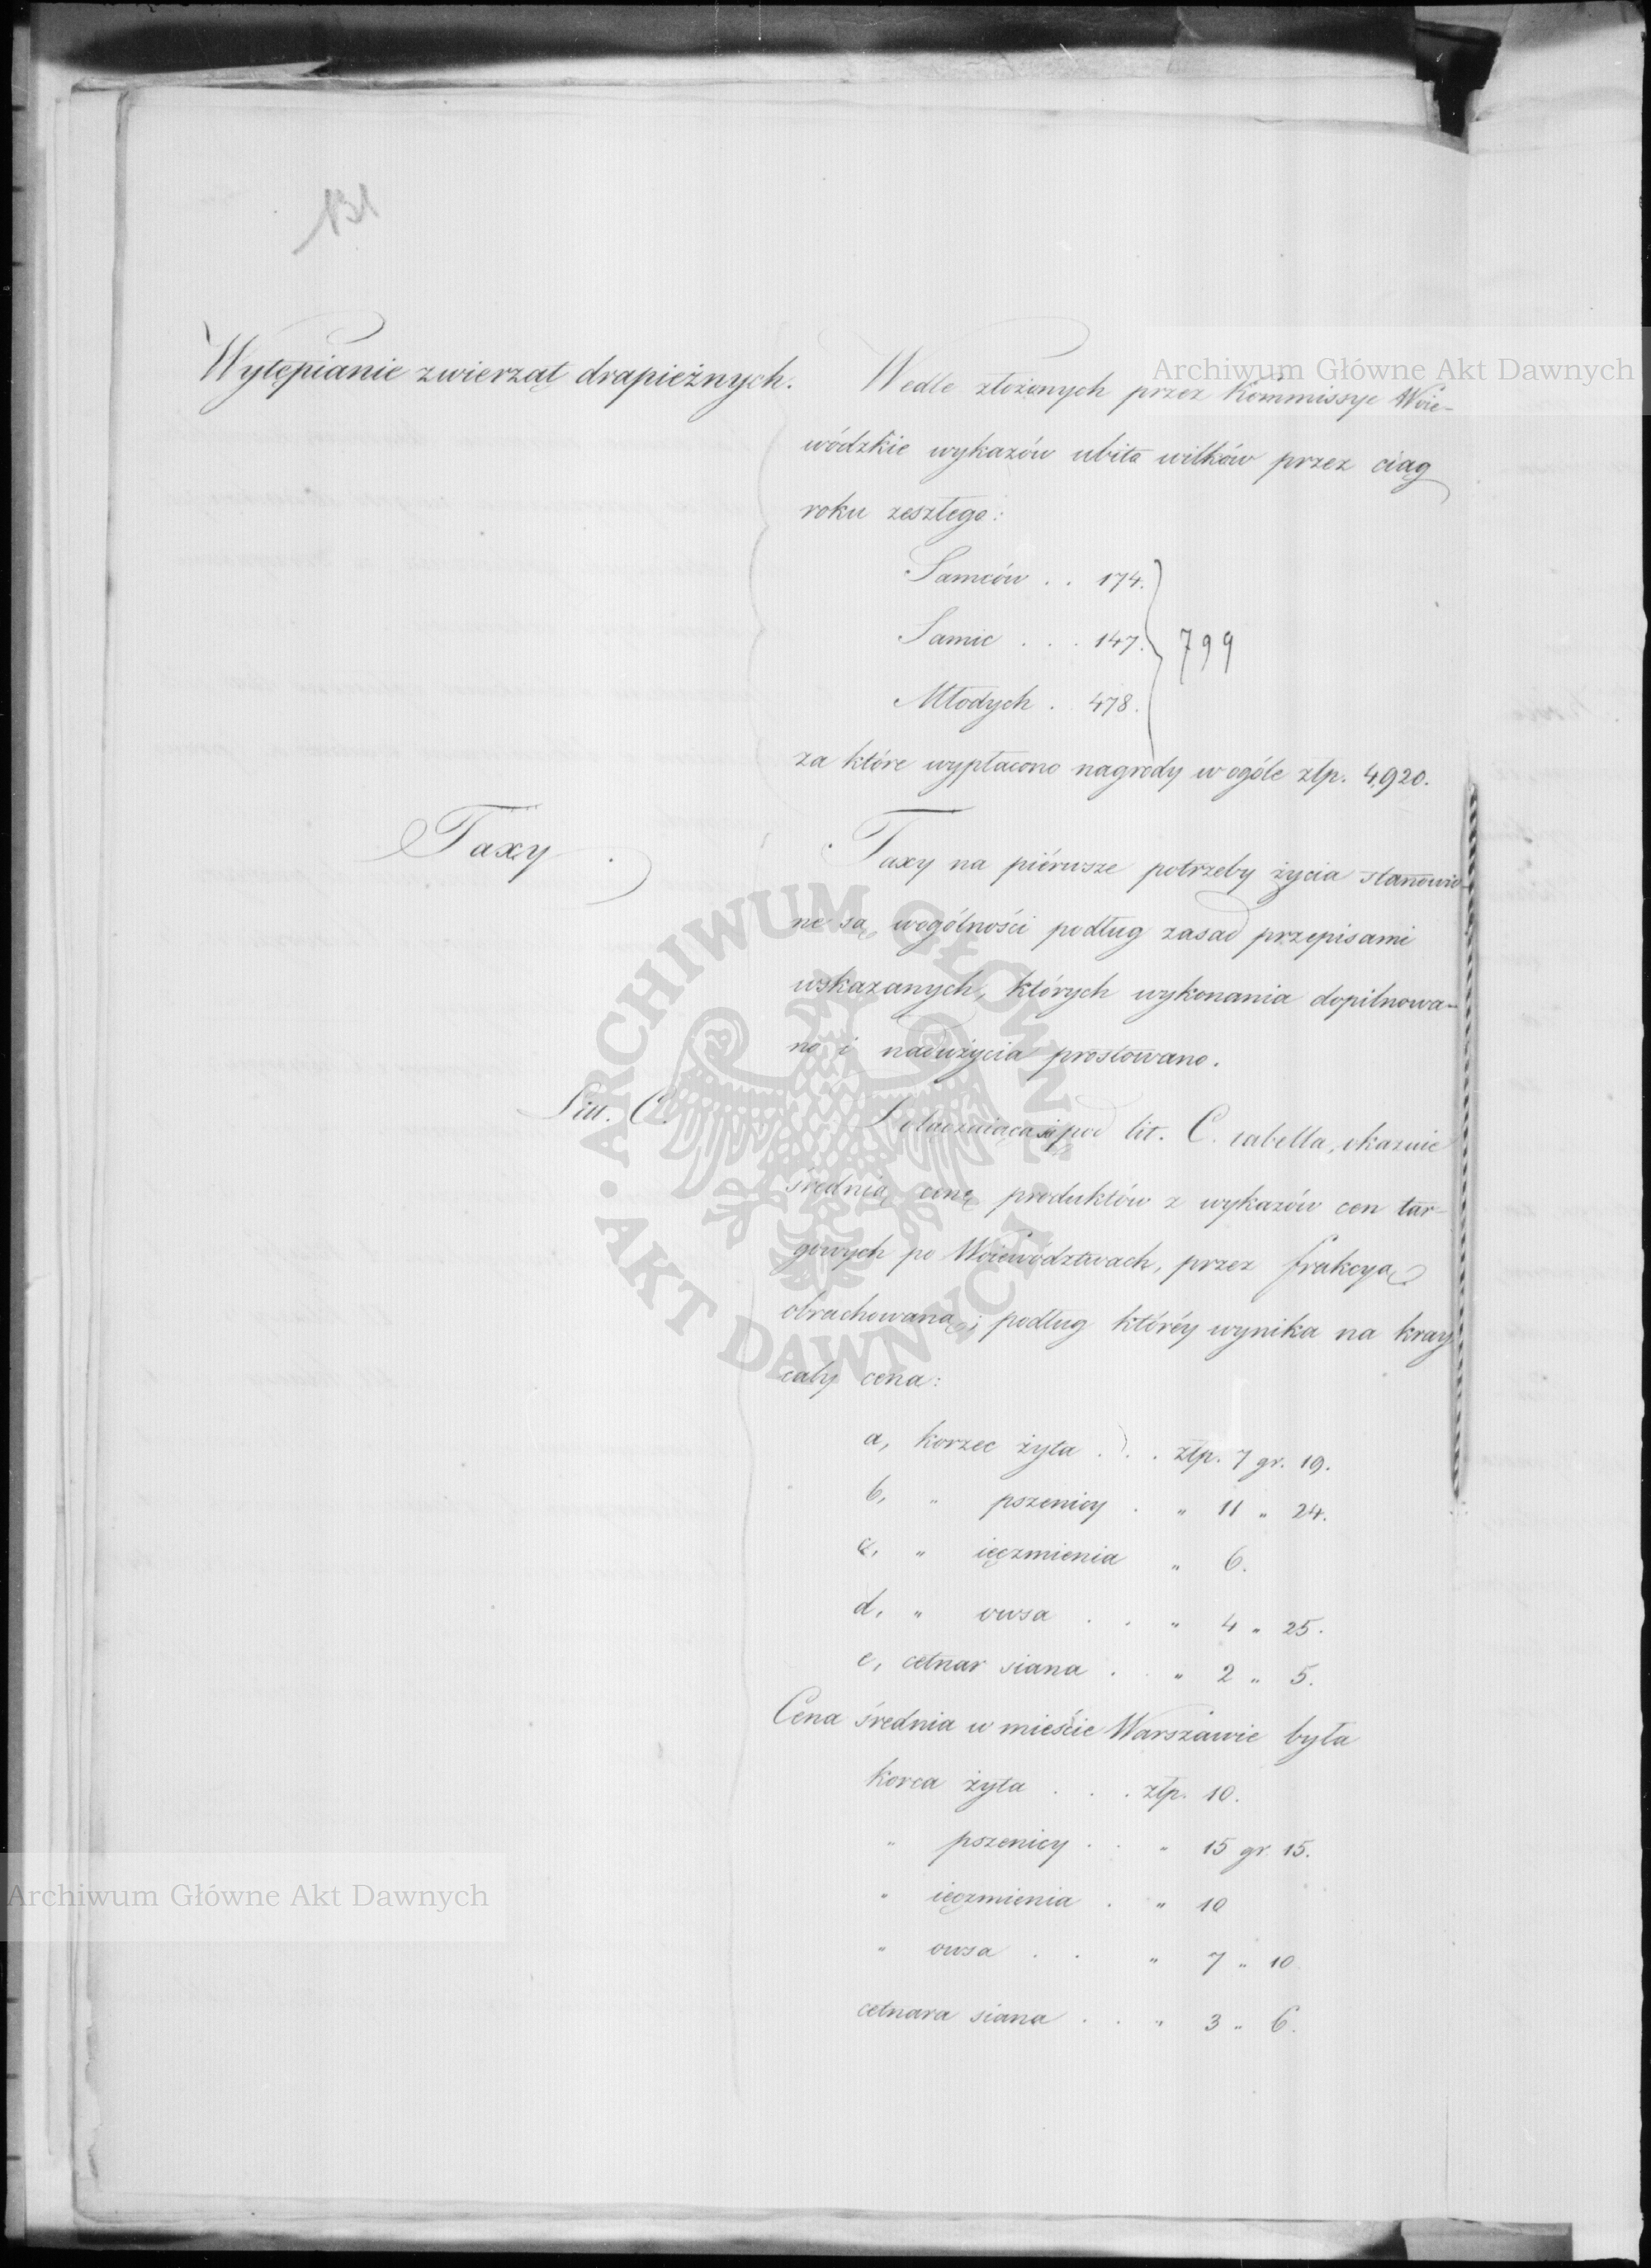 131
Wytępianie zwierząt drapieżnych.
Wedle złożonych przez Kommissye Woie-
wódzkie wykazów ubito wilków przez ciąg
roku zeszłego:
Samców . . 174.
Samic . . . 147. } 799
Młodych . 478.
za które wypłacono nagrody w ogóle złp. 4,920.
Taxy
Taxy na piérwsze potrzeby życia stanowio-
ne są wogólności podług zasad przepisami
wskazanych, których wykonania dopilnowa-
no i nadużycia prostowano.
Litt. C.
pod lit. C. tabella, okazuie
średnią cenę produktów z wykazów cen tar-
gowych po Woiewództwach, przez frakcyą
obrachowaną; podług któréy wynika na kray
cały cena:
a, korzec żyta . . . złp. 7 gr. 19.
b, " pszenicy . " 11 " 24.
c, " ięczmienia " 6.
d, " owsa . . " 4 " 25.
e, cetnar siana . . " 2 " 5.
Cena średnia w mieście Warszawie była
korca żyta . . . złp. 10.
" pszenicy . . " 15 gr. 15.
" ięczmienia . " 10
" owsa . . " 7 " 10.
cetnara siana . . " 3 " 6.
Archiwum Główne Akt Dawnych
ARCHIWUM GŁÓWNE
AKT DAWNYCH
Archiwum Główne Akt Dawnych